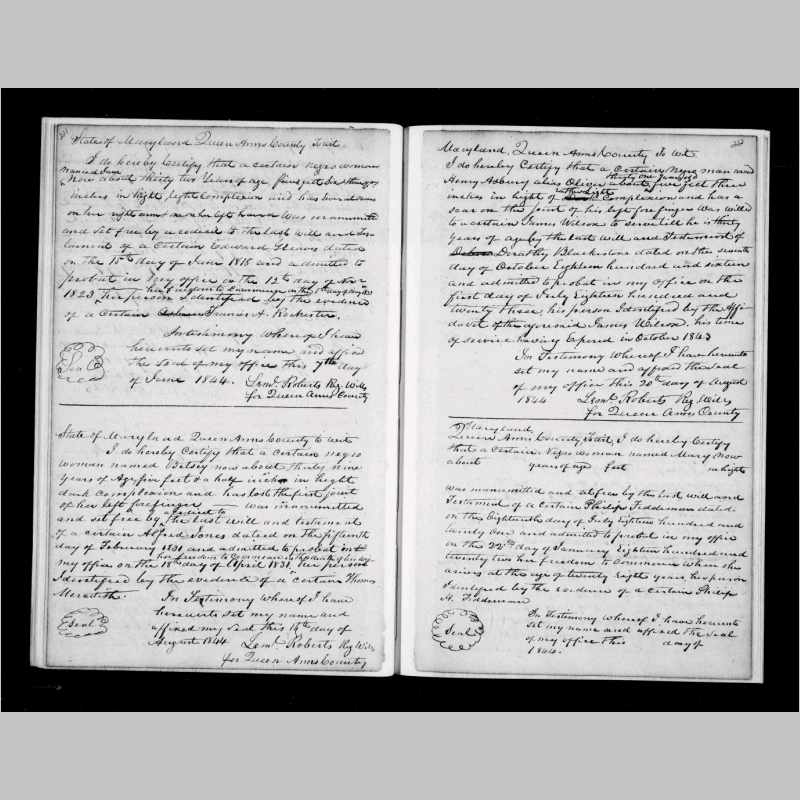 State of Maryland Queen Anns County To wit
I do hereby Certify that a certain negro woman
named Jane
Now about thirty two Years of age five feet Six & three qrs
inches in hight, light Complexion and has
on her right arm was manumitted
and Set free by a codicil to the last will and Tes-
tament of a Certain Edward dated
on the 15th day of June 1818 and admitted to
probat in my office on the 12th day of Novr
her freedom to Commence on the
1823, her person Identified by the evidence
of a Certain Francis A. Rochester.
In testimony Where of I have
hereunto set my name and affixd
the Seal of my office this 7th day
of June 1844. Leml. Roberts Reg. Wills
for Queen Anns County
Seal
State of Marylnad Queen Anns County to wit
I do hereby Certify that a certain negro
woman named Betsey now about thirty nine
Years of Age five feet & a half inch in hight
dark complexion and has lost the first joint
of her left forefinger was manumitted
a codicil to
and set free by the last will and testament
of a certain Alfred Jones dated on the fifteenth
day of February 1831 and admitted to probat in
her freedom to Commence at the death of
my office on the 18th day of April 1831, her person
Identified by the evidence of a certain Thomas
Meredith. In Testimony Where of I have
hereunto set my name and
affixed my Seal this 14th day of
August 1844 Leml. Roberts Reg Wills
for Queen Anns County
Seal
Maryland, Queen Anns County To Wit
I do hereby Certify that a Certain Negro man
Asbury alias Oliver about five feet three
thirty one Years old
inches in hight of Complexion and has a
scar on the joint of his left fore finger was willed
to a certain James Wilcox to serve till he is thirty
Years of age by the last will and Testament of
Dorathy Blackistone dated on the seventh
day of October Eighteen hundred and sixteen
and admitted to probat in my office on the
first day of July Eighteen hundred and
twenty three, his person Identified by the Affi-
davit of the aforesaid James Wilcox, his time
of service having Expired in October 1843
In Testimony Whereof I have hereunto
set my name and affixed the Seal
of my office this 20th day of August
1844 Leml. Roberts Reg Wills
for Queen Anns County
Maryland,
Queens Anns County To wit, I do hereby Certify
that a certain Negro woman named Mary now
about years of age feet in hight
was manumitted and set free by the last will and
Testament of a Certain Philip Fiddeman dated
on the Eighteenth day of July Eighteen hundred and
twenty one and admitted to probat in my office
on the 22nd day of January Eighteen hundred and
twenty two her freedom to commence when she
arives at the age of twenty eight years, her person
Identified by the evidence of a certain Philip
H. Fiddeman
In Testimony Whereof I have hereunto
set my name and affixed the Seal
of my office this day of
1844.
Seal